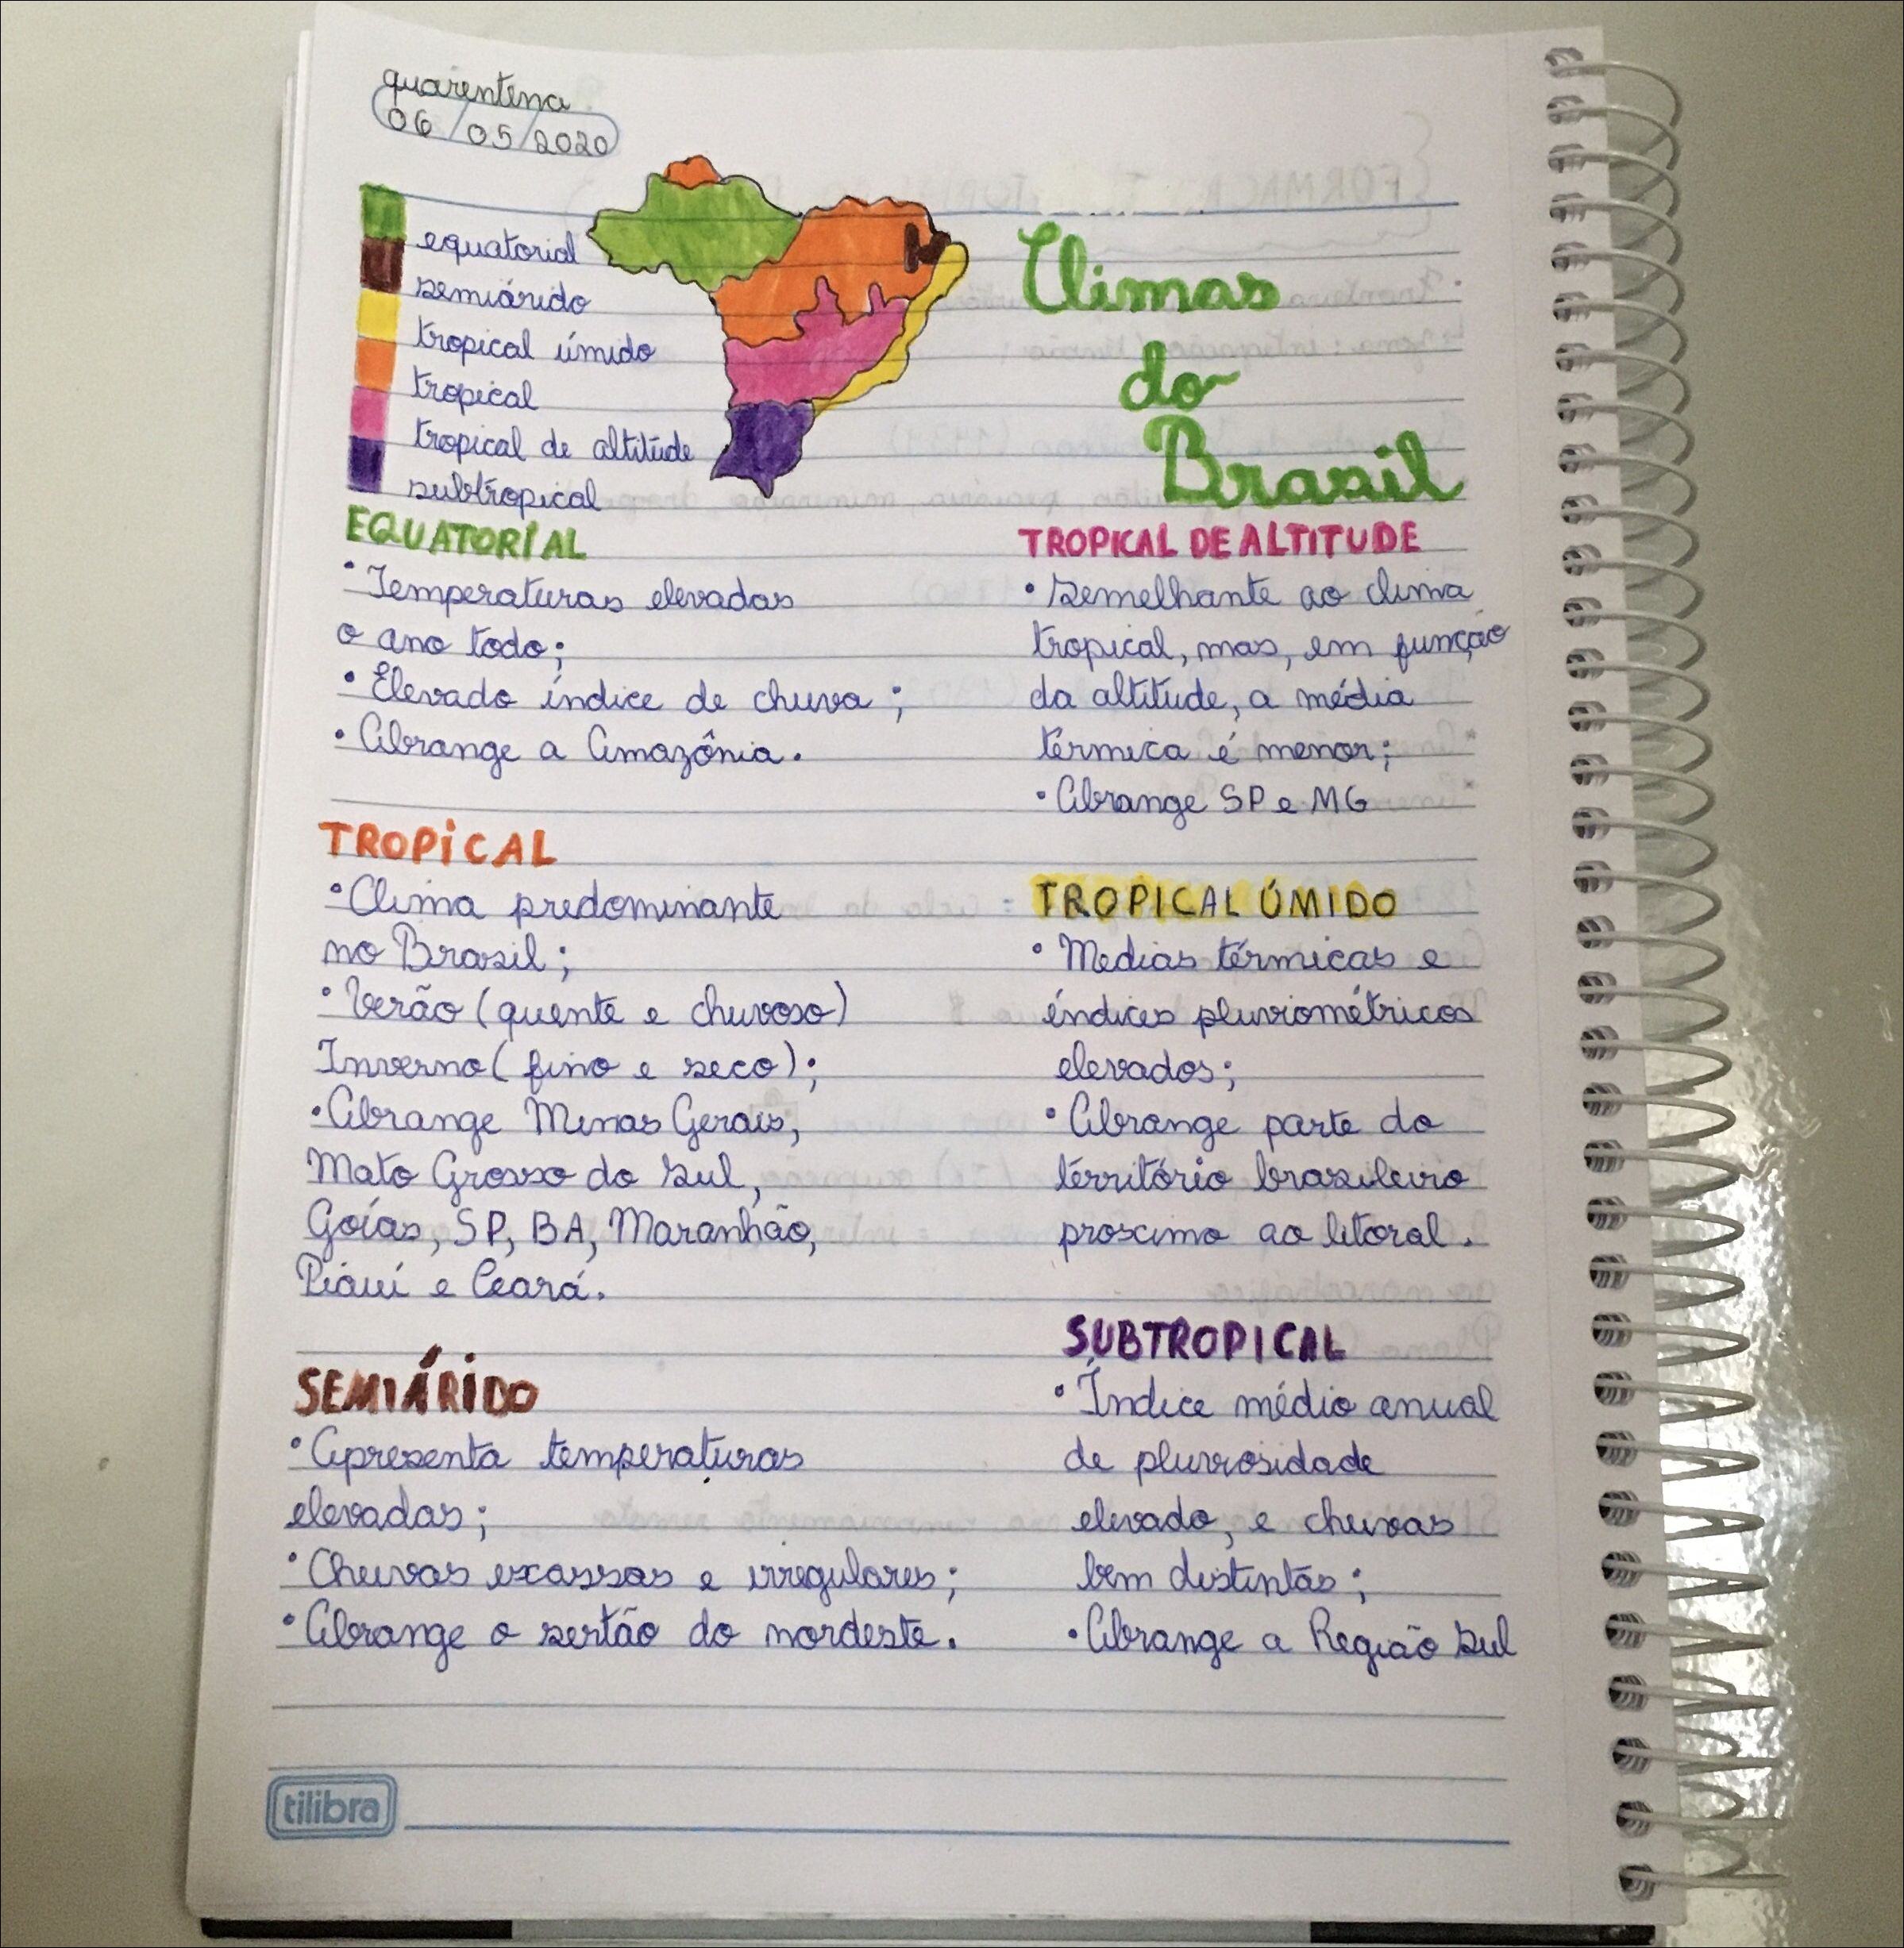 quarentena
06/05/2020
equatorial
semiárido
tropical úmido
tropical
tropical de altitude
subtropical
Climas
do
Brasil
EQUATORIAL
• Temperaturas elevadas
o ano todo;
• Elevado índice de chuva;
• Abrange a Amazônia.
TROPICAL
• Clima predominante
no Brasil;
• Verão (quente e chuvoso)
Inverno (fino e seco);
• Abrange Minas Gerais,
Mato Grosso do Sul,
Goías, SP, BA, Maranhão,
Piauí e Ceará.
SEMIÁRIDO
• Apresenta temperaturas
elevadas;
• Chuvas excassas e irregulares;
• Abrange o sertão do nordeste.
TROPICAL DE ALTITUDE
• Semelhante ao clima
tropical, mas, em função
da altitude, a média
térmica é menor;
• Abrange SP e MG
TROPICAL ÚMIDO
• Medias térmicas e
índices pluviométricos
elevados;
• Abrange parte do
território brasileiro
proximo ao litoral.
SUBTROPICAL
• Índice médio anual
de pluviosidade
elevado, e chuvas
bem distintas;
• Abrange a Região Sul
tilibra